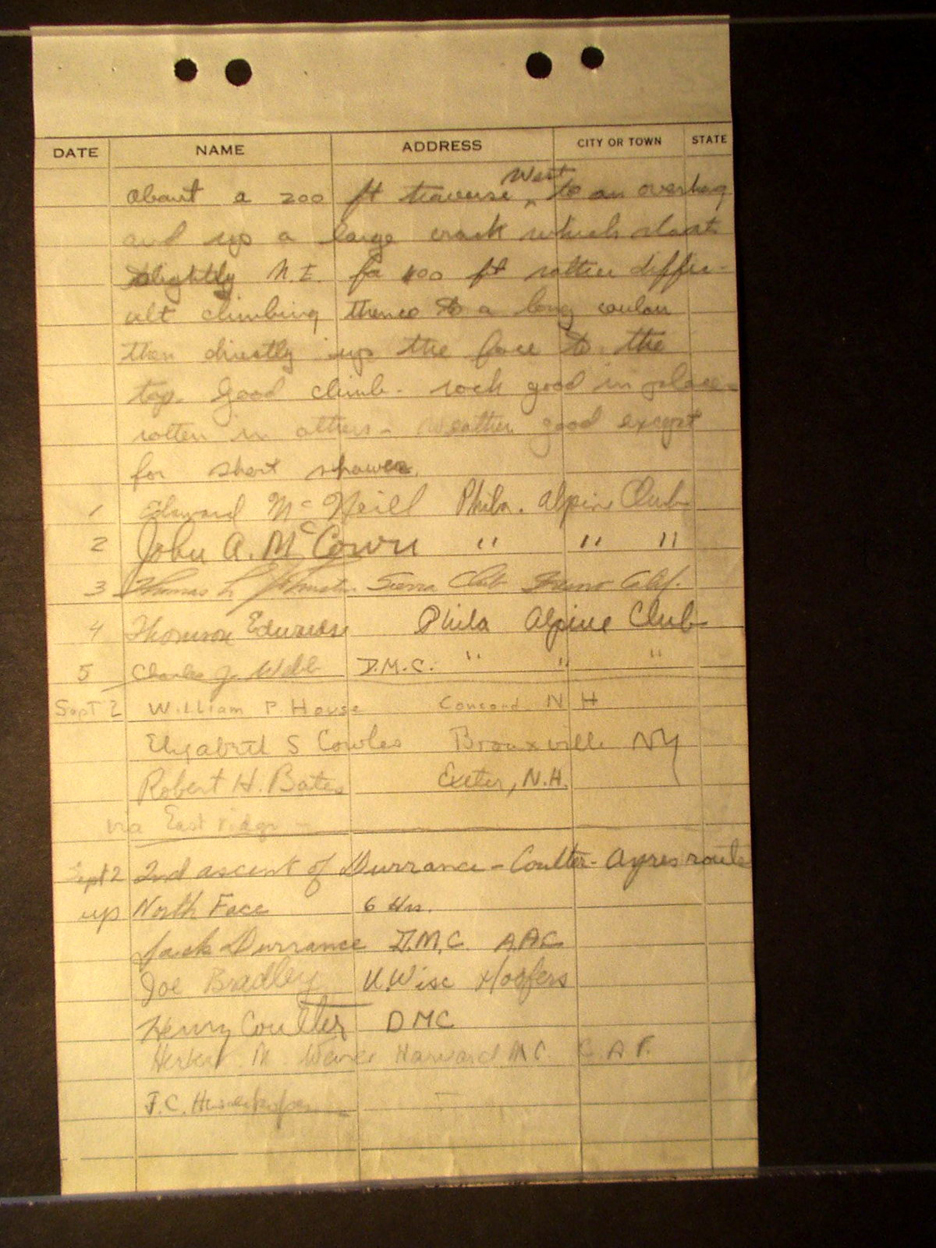 DATE NAME ADDRESS CITY OR TOWN STATE
about a 200 ft traverse West to an overhag
and up a large crack which slants
slightly N.E. for 400 ft rather diffic-
ult climbing thence to a long
then directly up the face to the
top. Good climb. rock good in places
rotten in others - Weather good except
for short showers.
1 Edward McNeill Phila. Alpine Club
2 John A. McCown " " "
3 Thomas L. Johnston Sierra Club Fresno Calif.
4 Phila Alpine Club
5 Charles J. Webb D.M.C. " " "
Sept 2 William P. House Concord N H
Elizabeth S Cowles Bronxville NY
Robert H. Bates Exeter, N.H.
via East ridge -
Sept 2 2nd ascent of Durrance - Coulter - Ayres route
up North Face 6 Hrs.
Jack Durrance D.M.C. A.A.C.
Joe Bradley U. Wisc Hoofers
Henry Coulter DMC
Harvard M.C.
F.C.